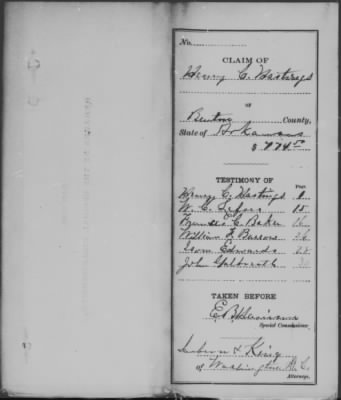 No.
CLAIM OF
Henry C. Hastings
OF
Benton County,
State of Arkansas
$774.50
TESTIMONY OF
Page
Henry C. Hastings 1
W. C. Lefors 15
Francis C. Baker 16
William F. Burrows
Isom Edwards 28
John Galbraith
TAKEN BEFORE
E. B.
Special Commissioner.
& King
of Washington D.C.
Attorneys.